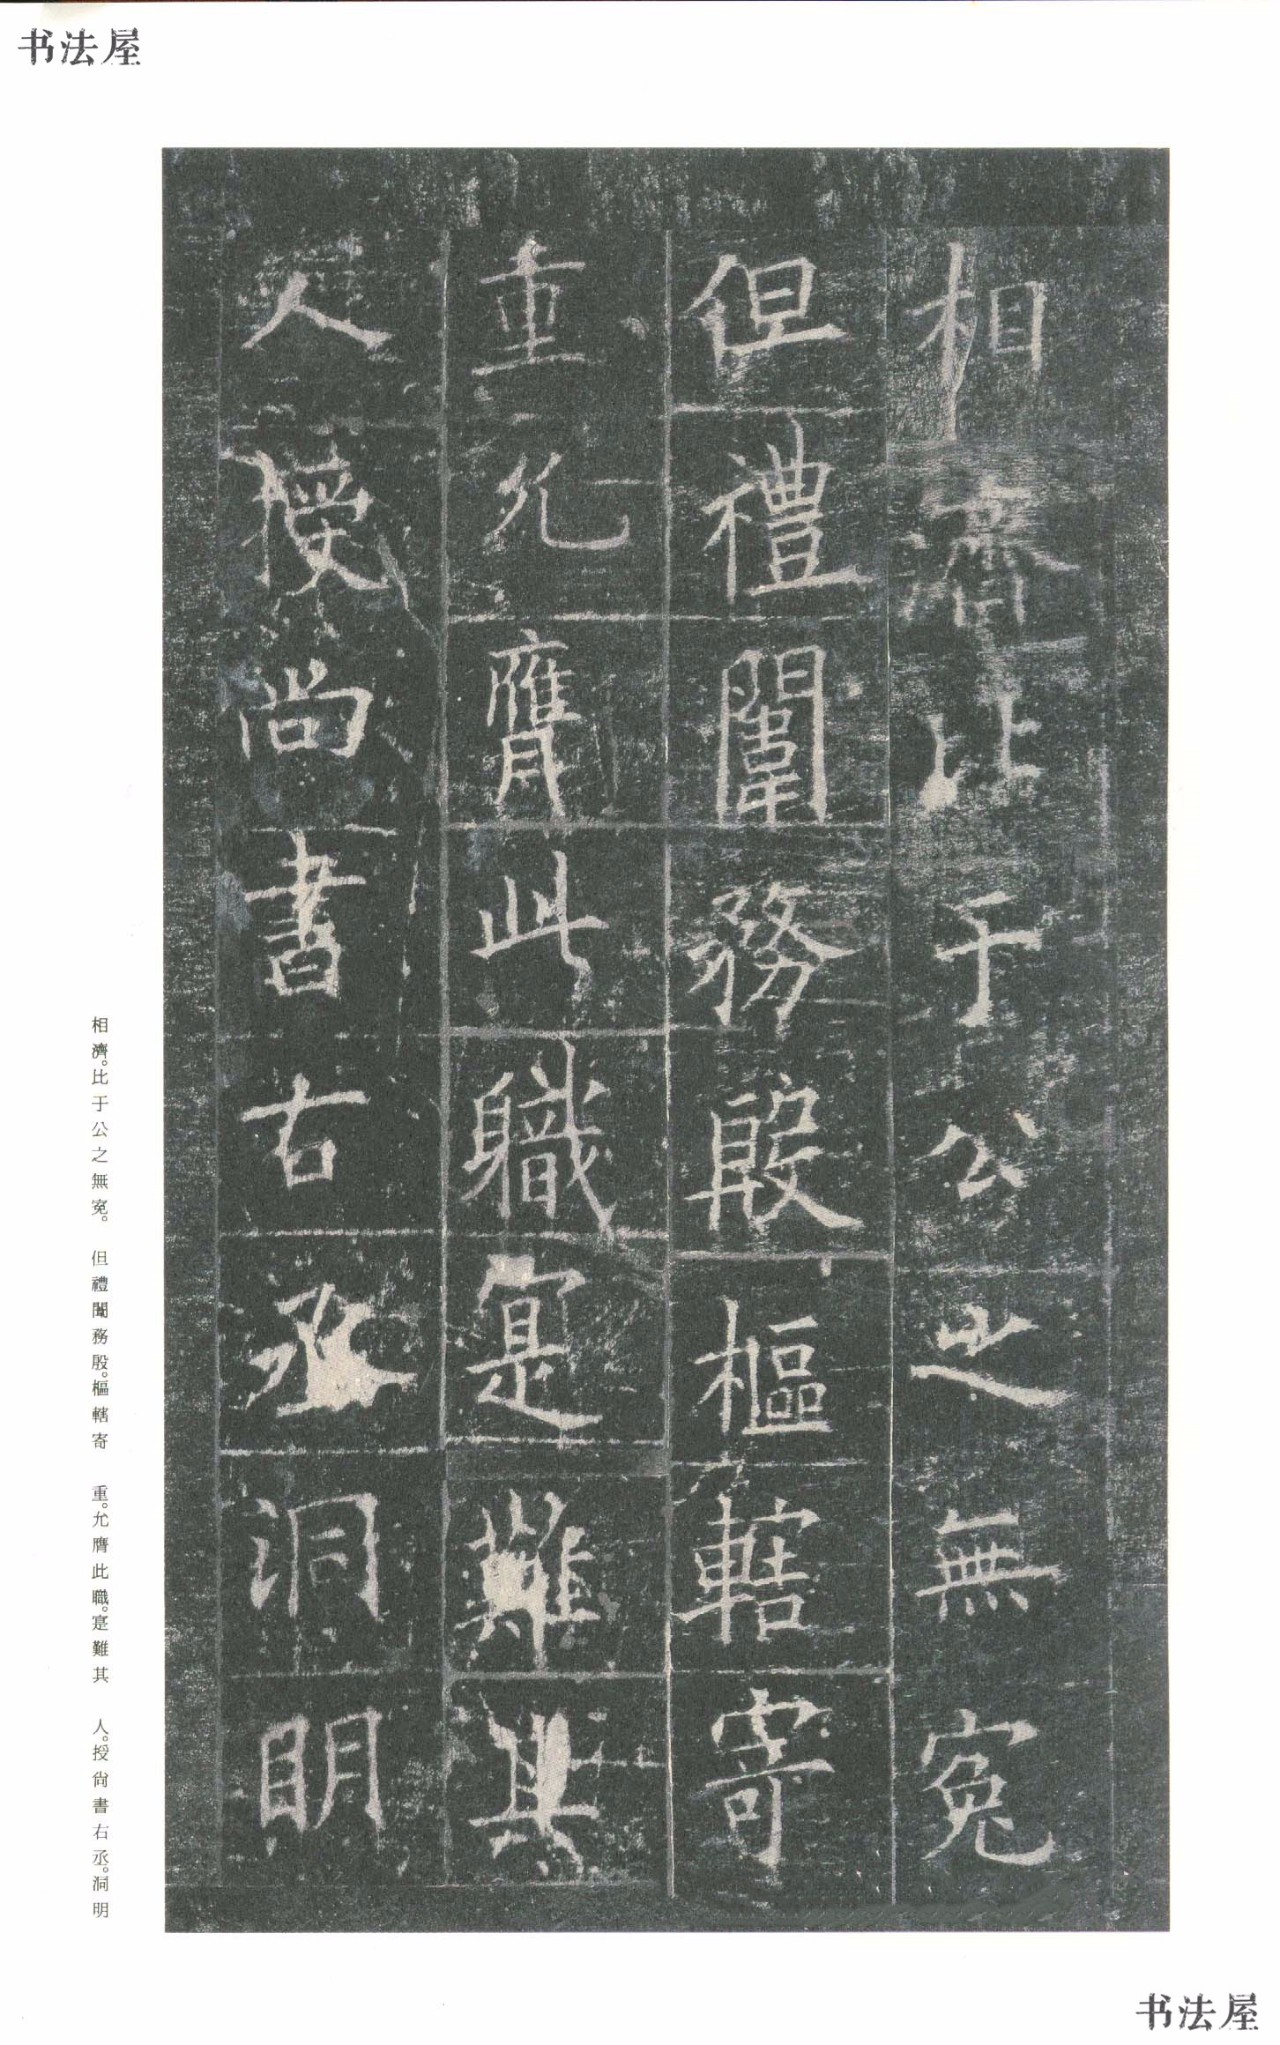 书法屋
相濟比于公之無寃
但禮闈務殷樞轄寄
重允膺此職寔難其
人授尚書右丞洞明
相濟。比于公之無寃。 但禮闈務殷。樞轄寄 重。允膺此職。寔難其 人。授尚書右丞。洞明
书法屋